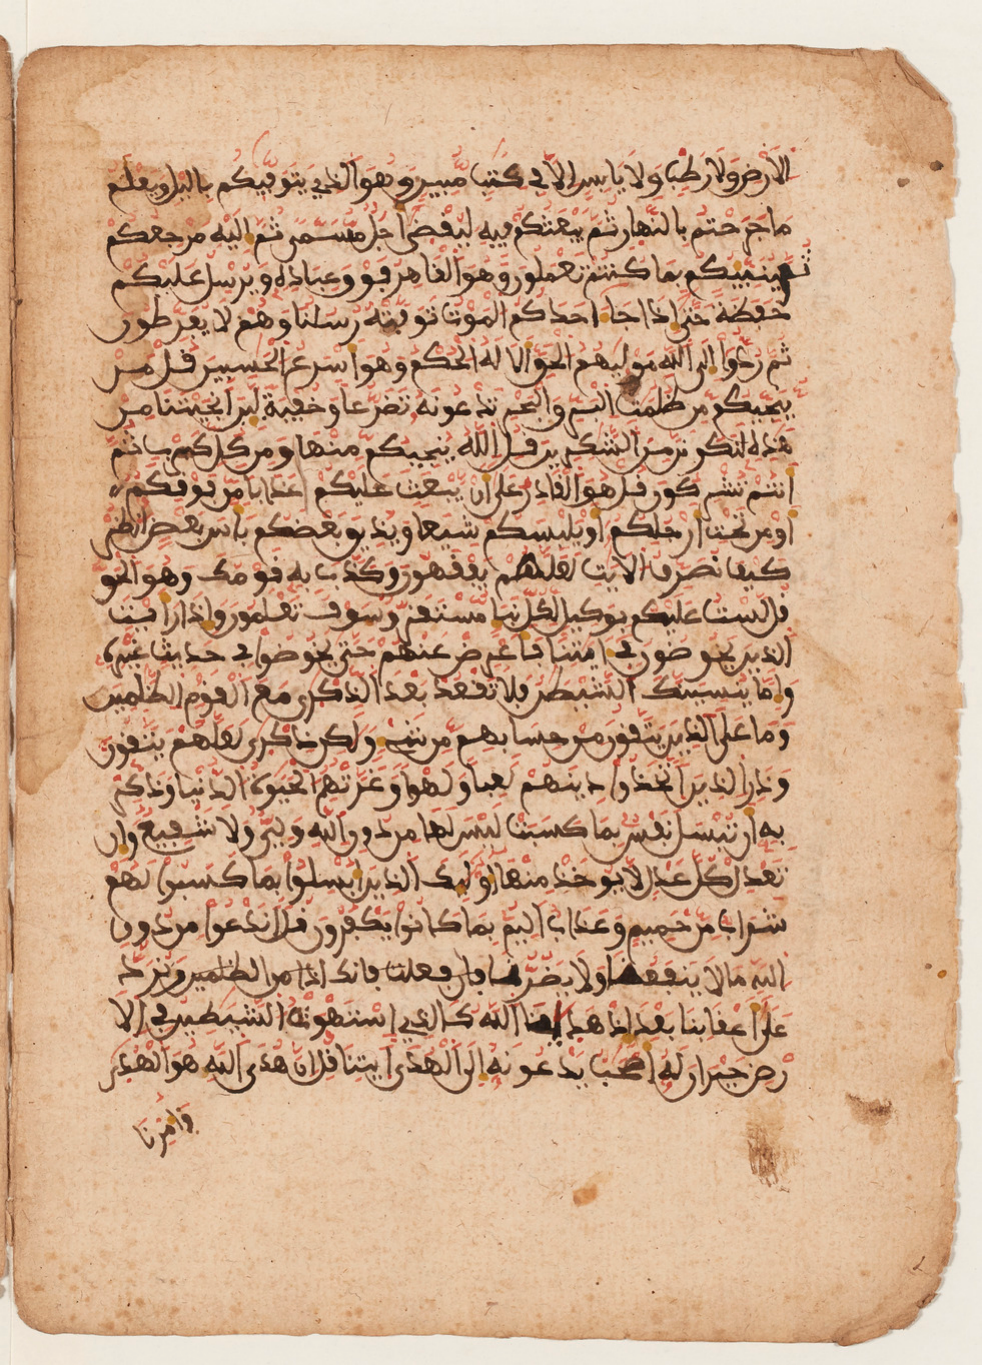 الارض ولا رطب ولا يابس الا في كتب مبين وهو الذي يتوفيكم باليل ويعلم
ما جرحتم بالنهار ثم يبعثكم فيه ليقضى اجل مسمى ثم اليه مرجعكم
ثم ينبيكم بما كنتم تعملون وهو القاهر فوق عباده ويرسل عليكم
حفظة حتى اذا جا احدكم الموت توفته رسلنا وهم لا يفرطون
ثم ردوا الى الله موليهم الحق الا له الحكم وهو اسرع الحسبين قل من
ينجيكم من ظلمت البر والبحر تدعونه تضرعا وخفية لين انجيتنا من
هذه لنكونن من الشكرين قل الله ينجيكم منها ومن كل كرب ثم
انتم تشركون قل هو القادر على ان يبعث عليكم عذابا من فوقكم
او من تحت ارجلكم او يلبسكم شيعا ويذيق بعضكم باس بعض انظر
كيف نصرف الايت لعلهم يفقهون وكذب به قومك وهو الحق
قل لست عليكم بوكيل لكل نبا مستقر وسوف تعلمون واذا رايت
الذين يخوضون في ايتنا فاعرض عنهم حتى يخوضوا في حديث غيره
واما ينسينك الشيطن فلا تقعد بعد الذكرى مع القوم الظلمين
وما على الذين يتقون من حسابهم من شي ولكن ذكرى لعلهم يتقون
وذر الذين اتخذوا دينهم لعبا ولهوا وغرتهم الحيوة الدنيا وذكر
به ان تبسل نفس بما كسبت ليس لها من دون الله ولي ولا شفيع وان
تعدل كل عدل لا يوخذ منها اوليك الذين ابسلوا بما كسبوا لهم
شراب من حميم وعذاب اليم بما كانوا يكفرون قل اندعوا من دون
الله ما لا ينفعنا ولا يضرنا ونرد
على اعقابنا بعد اذ هدينا الله كالذي استهوته الشيطين في الا
رض حيران له اصحب يدعونه الى الهدى ايتنا قل ان هدى الله هو الهدى
وامرنا